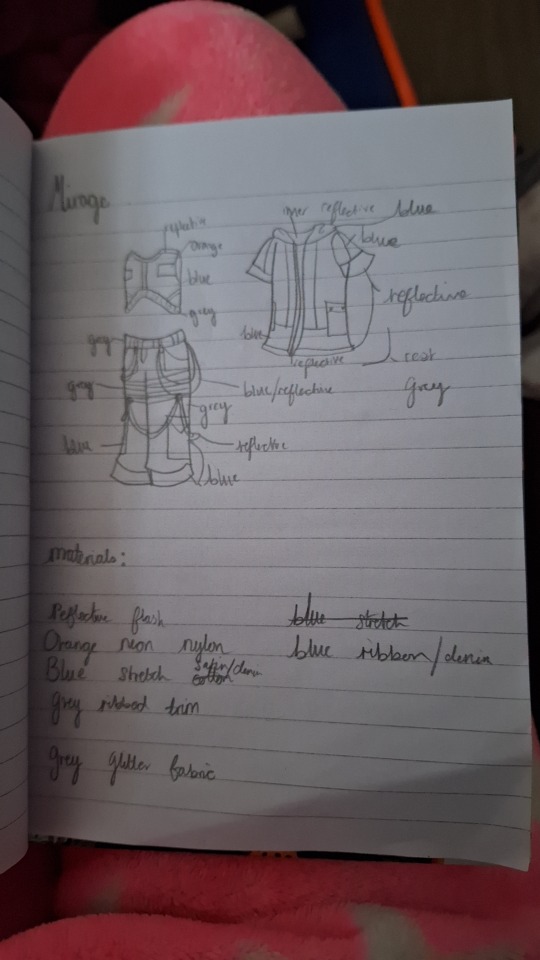 Mirage
inner reflective blue
blue
orange
blue
reflective
grey
grey
blue
reflective
rest
grey
blue/reflective
grey
grey
blue
reflective
blue
materials:
Reflective flash
blue stretch
Orange neon nylon
blue ribbon/denim
Blue stretch satin/denim
cotton
grey ribbed trim
grey glitter fabric